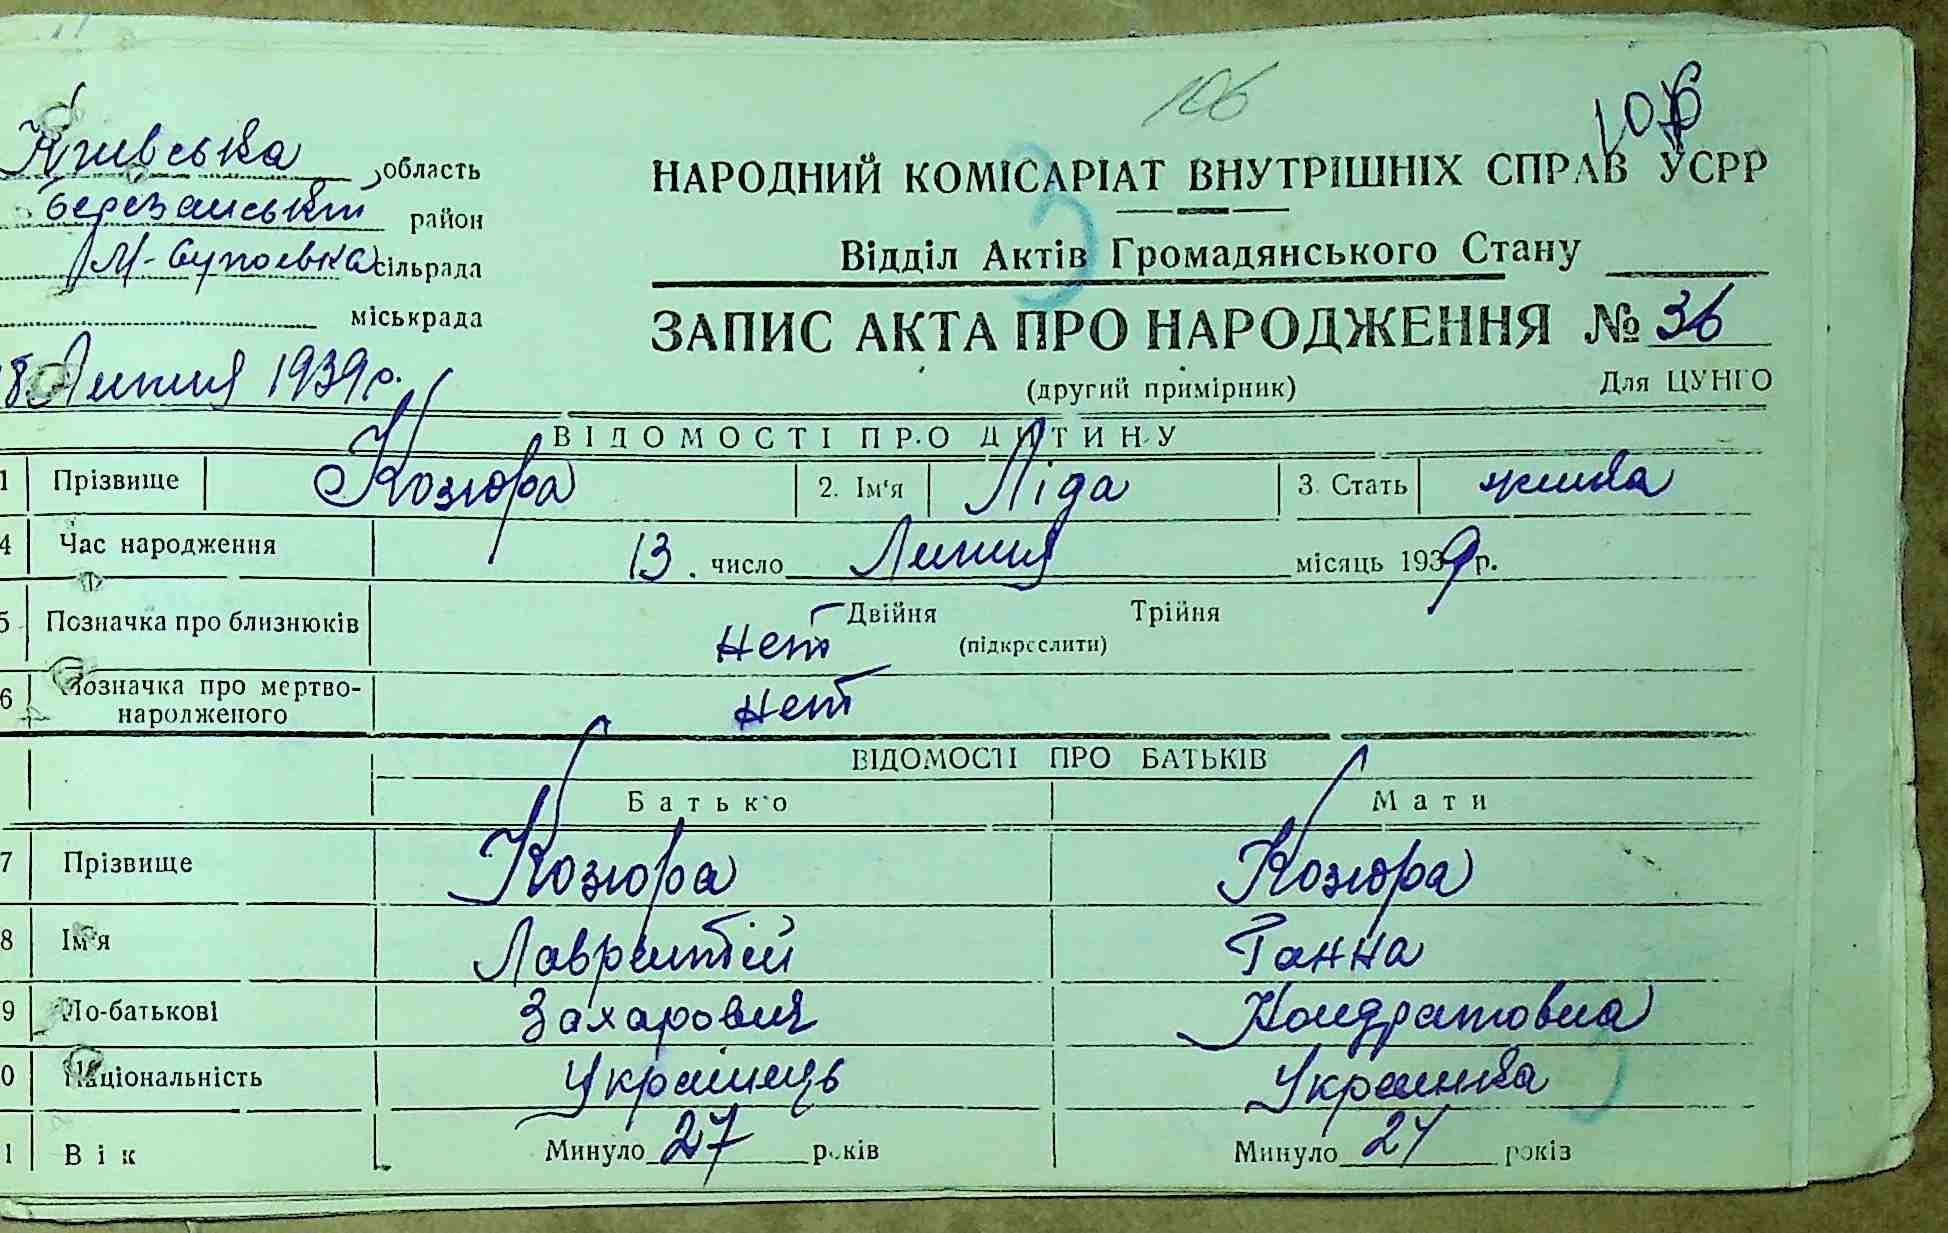 106
106
Київська область
Березанський район
М-Супоєвка сільрада
міськрада
18 Липня 1939 р.
НАРОДНИЙ КОМІСАРІАТ ВНУТРІШНІХ СПРАВ УСРР
Відділ Актів Громадянського Стану
ЗАПИС АКТА ПРО НАРОДЖЕННЯ № 36
(другий примірник) Для ЦУНГО
ВІДОМОСТІ ПРО ДИТИНУ
1 Прізвище Козюра 2. Ім'я Ліда 3. Стать жінка
4 Час народження 13. число Липня місяць 1939 р.
5 Позначка про близнюків Нет Двійня Трійня
(підкреслити)
6 Позначка про мертво-
народженого нет
ВІДОМОСТІ ПРО БАТЬКІВ
Батько Мати
7 Прізвище Козюра Козюра
8 Ім'я Лаврентій Ганна
9 По-батькові Захарович Кондратовна
0 Національність Українець Украинка
1 Вік Минуло 27 років Минуло років